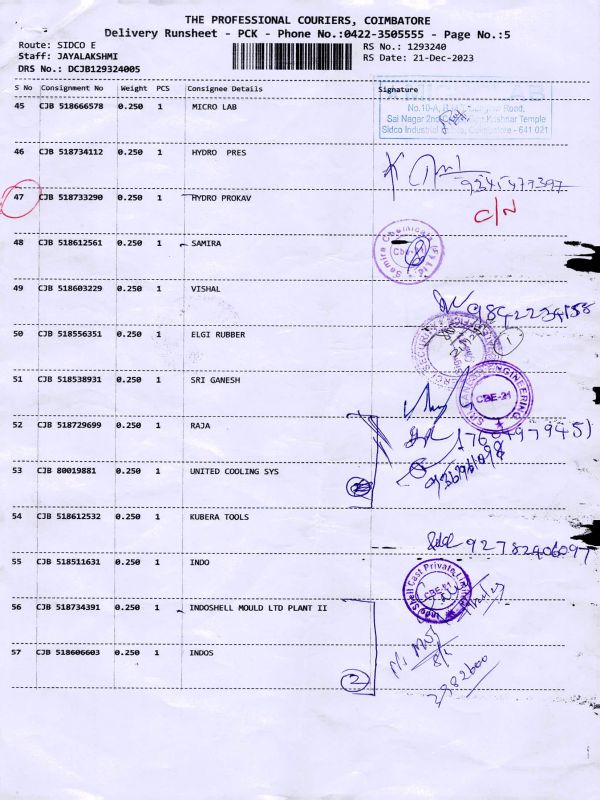 THE PROFESSIONAL COURIERS, COIMBATORE
Delivery Runsheet - PCK - Phone No.:0422-3505555 - Page No.:5
Route: SIDCO E
RS No.: 1293240
Staff: JAYALAKSHMI
RS Date: 21-Dec-2023
DRS No.: DCJB129324005
S No Consignment No Weight PCS Consignee Details Signature
45 CJB 518666578 0.250 1 MICRO LAB
No.10-A, Road,
Sai Nagar 2nd Temple
Sidco Industrial Coimbatore - 641 021
46 CJB 518734112 0.250 1 HYDRO PRES
9245477397
47 CJB 518733290 0.250 1 HYDRO PROKAV
C/N
48 CJB 518612561 0.250 1 SAMIRA
Samira Chemicals (P) Ltd.
49 CJB 518603229 0.250 1 VISHAL
9842234158
50 CJB 518556351 0.250 1 ELGI RUBBER
SECURITY
1
51 CJB 518538931 0.250 1 SRI GANESH
ENGINEERING
CBE-21
52 CJB 518729699 0.250 1 RAJA
53 CJB 80019881 0.250 1 UNITED COOLING SYS
54 CJB 518612532 0.250 1 KUBERA TOOLS
92782906097
55 CJB 518511631 0.250 1 INDO
Indo Shell Cast Private Limited
CBE-21
56 CJB 518734391 0.250 1 INDOSHELL MOULD LTD PLANT II
57 CJB 518606603 0.250 1 INDOS
2